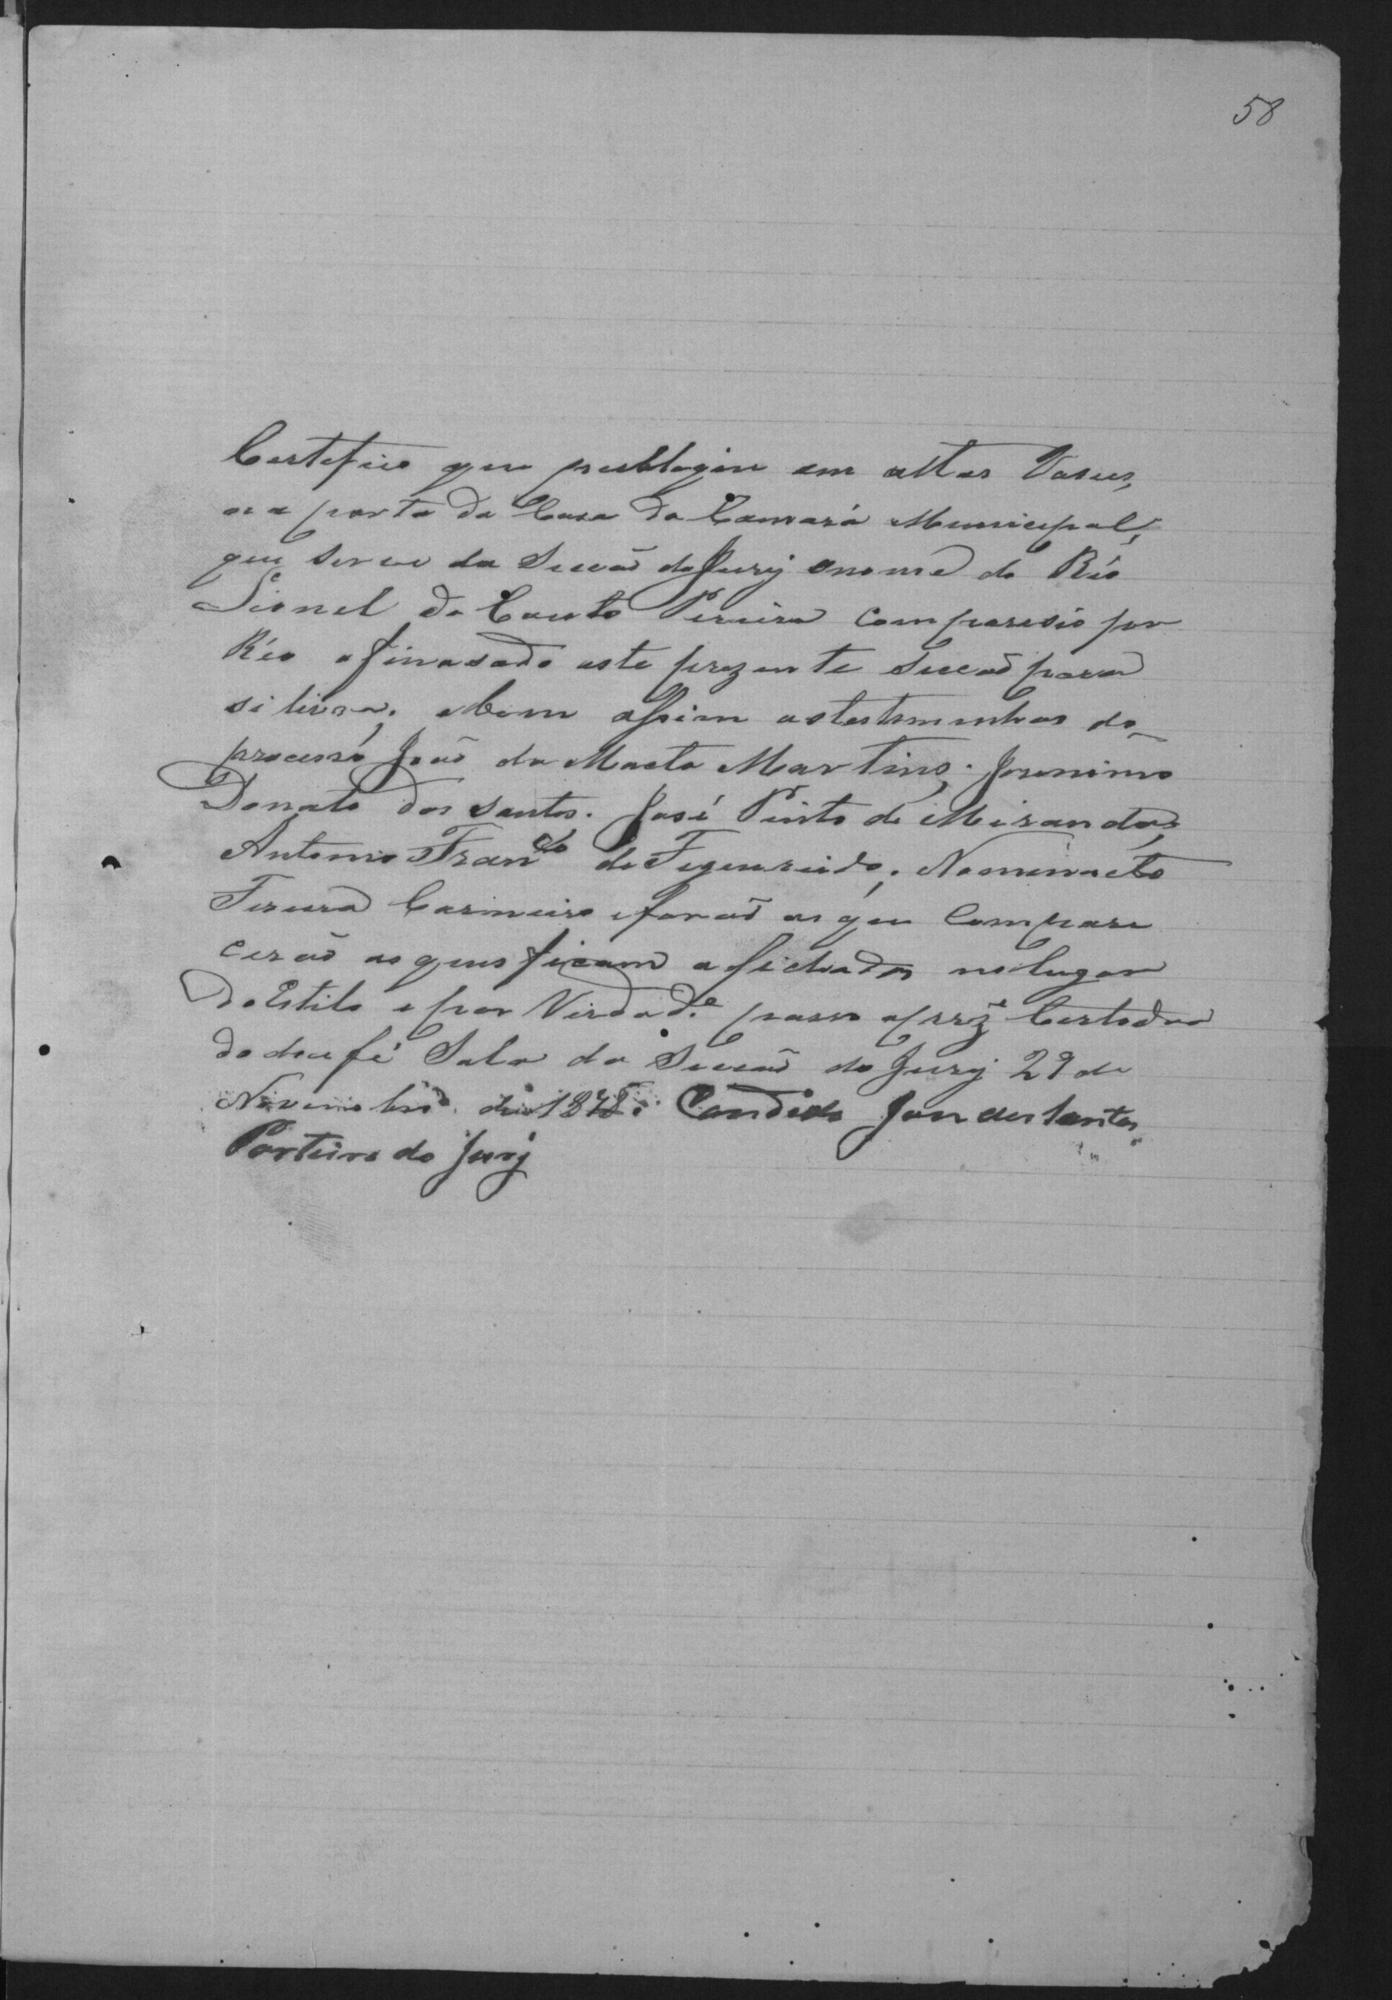 58
Certefico que publiquei em altas Vozes,
na porta da Casa da Camara Municipal,
que serve da Secão do Jury onome do Réo
Lionel do Couto Pereira comparesio por
Réo afinasado este prezente Secaõ para
si livra, e bem assim astestemunhas do
processo João da Mata Martins, Jeronimo
Donato dos Santos. José Pinto de Miranda,
Antonio Fran.co de Figuereido,
Carneiro e foraõ as que Compare
ceraõ as ques ficam afichadas no lugar
do Estilo e por Verdad.e paso aprez.e
do que dou fé Sala da Secaõ do Jury 29 de
Novembro de 1878. Candido Jose dos Santos
Porteiro do Jury